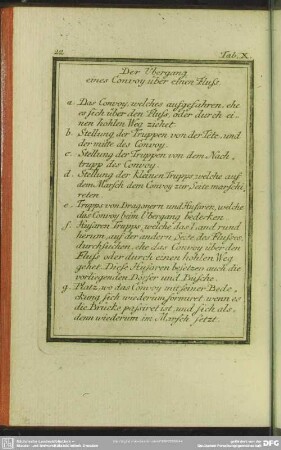 22.
Tab. X.
Der Übergang
eines Convoy über einen Fluss.
a. Das Convoy, welches aufgefahren, ehe
es sich über den Fluss, oder durch ei-
nen hohlen Weg ziehet.
b. Stellung der Truppen von der Tete und
der mitte des Convoy.
c. Stellung der Truppen von dem Nach-
trupp des Convoy.
d. Stellung der kleinen Trupps welche auf
dem Marsch dem Convoy zur Seite marschi-
reten.
e. Trupps von Dragonern und Husaren, welche
das Convoy beim Übergang bedecken.
f. Husaren Trupps, welche das Land rund
herum, auf der andern Seite des Flusses,
durchsuchen, ehe das Convoy über den
Fluss oder durch einen hohlen Weg
gehet. Diese Husaren besetzen auch die
vorliegenden Dörfer und Büsche.
g. Platz, wo das Convoy mit seiner Bede-
ckung sich wiederum formiret, wenn es
die Brücke passiret ist, und sich als-
denn wiederum im Marsch setzt.